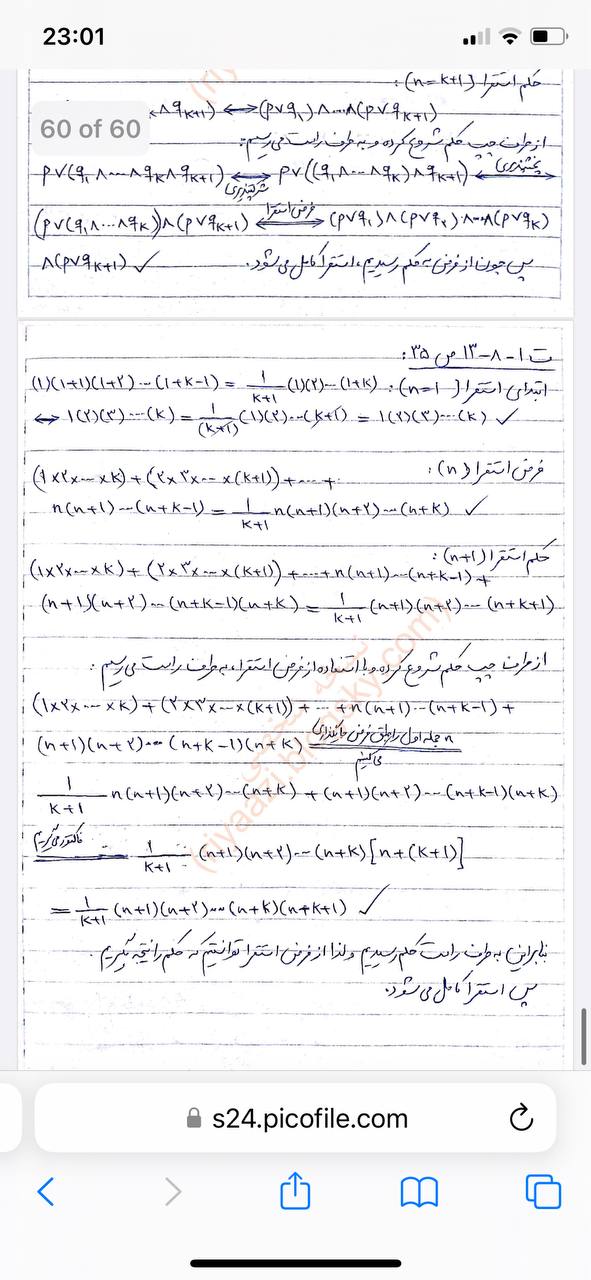 23:01
حکم استقرا (n=k+1):
60 of 60
∧q_{k+1}) ↔ (p∨q₁)∧...∧(p∨q_{k+1})
از طرف چپ حکم شروع کرده و به طرف راست می‌رسیم:
p∨(q₁∧...∧q_k∧q_{k+1}) ⟺ p∨((q₁∧...∧q_k)∧q_{k+1}) ⟺ پخشپذیری
شرکتپذیری
(p∨(q₁∧...∧q_k))∧(p∨q_{k+1}) ⟺ فرض استقرا (p∨q₁)∧(p∨q₂)∧...∧(p∨q_k)
∧(p∨q_{k+1}) ✓ پس چون از فرض به حکم رسیدیم، استقرا کامل می‌شود.
ت ۱-۸-۱۳ ص ۳۵:
ابتدای استقرا (n=1): (1)(1+1)(1+۲)...(1+k-1) = 1/(k+1) (1)(۲)...(1+k)
↔ 1(۲)(۳)...(k) = 1/(k+1) (1)(۲)...(k+1) = 1(۲)(۳)...(k) ✓
فرض استقرا (n): (1×۲×...×k)+(۲×۳×...×(k+1))+...+
n(n+1)...(n+k-1) = 1/(k+1) n(n+1)(n+۲)...(n+k) ✓
حکم استقرا (n+1):
(1×۲×...×k)+(۲×۳×...×(k+1))+...+n(n+1)...(n+k-1)+
(n+1)(n+۲)...(n+k-1)(n+k) = 1/(k+1) (n+1)(n+۲)...(n+k+1)
از طرف چپ حکم شروع کرده و با استفاده از فرض استقرا، به طرف راست می‌رسیم:
(1×۲×...×k)+(۲×۳×...×(k+1))+...+n(n+1)...(n+k-1)+
(n+1)(n+۲)...(n+k-1)(n+k) = n جمله اول را طبق فرض جایگذاری
می‌کنیم
1/(k+1) n(n+1)(n+۲)...(n+k) + (n+1)(n+۲)...(n+k-1)(n+k)
فاکتور می‌گیریم = 1/(k+1) (n+1)(n+۲)...(n+k)[n+(k+1)]
= 1/(k+1) (n+1)(n+۲)...(n+k)(n+k+1) ✓
بنابراین به طرف راست حکم رسیدیم و لذا از فرض استقرا توانستیم که حکم را نتیجه بگیریم.
پس استقرا کامل می‌شود.
s24.picofile.com